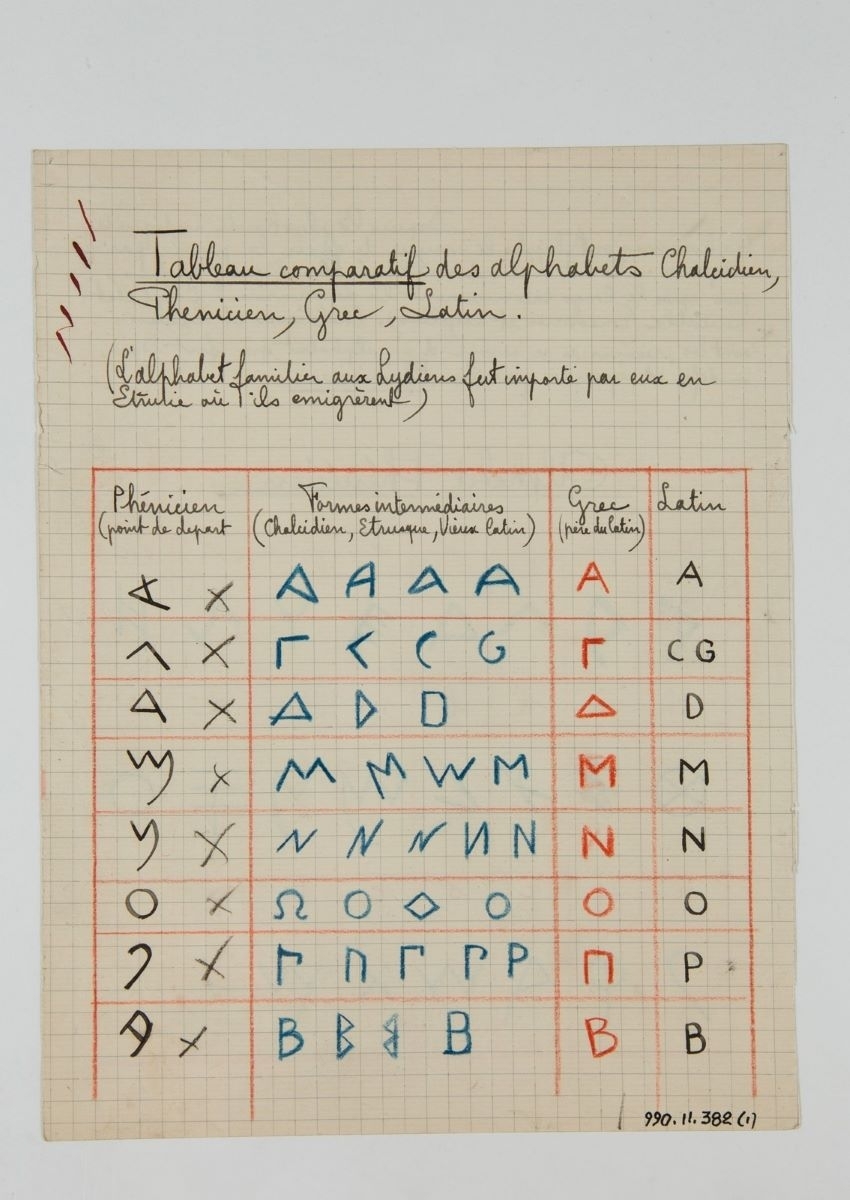 Tableau comparatif des alphabets Chalcidien,
Phenicien, Grec, Latin.
(L'alphabet familier aux Lydiens fut importé par eux en
Etrurie où ils emigrèrent)
Phénicien Formes intermédiaires Grec Latin
(point de depart (Chalcidien, Etrusque, Vieux latin) (père du latin)
𐤀 X A A A A Α A
𐤂 X Γ < C G Γ C G
𐤃 X Δ D D Δ D
𐤌 X M M W M Μ M
𐤍 X N N N И N Ν N
𐤏 X Ω O ◇ O Ο O
𐤐 X Γ Π Γ P P Π P
𐤁 X B B 𐌁 B Β B
990.11.382 (1)